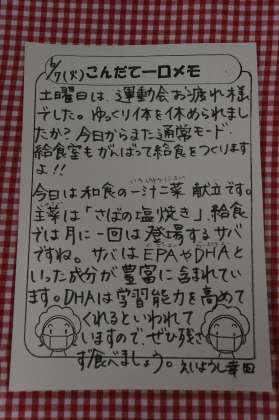 6/7(火)こんだて一口メモ
土曜日は、運動会お疲れ様
でした。ゆっくり体を休められまし
たか?今日からまた通常モード
給食室もがんばって給食をつくります
よ!!
今日は和食の一汁二菜 献立です。
主菜は「さばの塩焼き」、給食
では月に一回は登場するサバ
ですね。サバはEPAやDHAと
いった成分が豊富に含まれてい
ます。DHAは学習能力を高めて
くれるといわれて
いますので、ぜひ残さ
ず食べましょう。えいようし 幸田